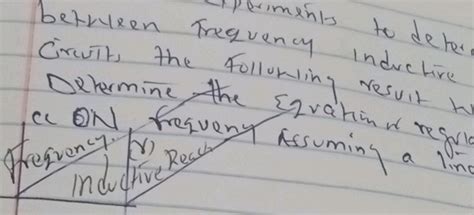 experiments to deter
between frequency inductive
Circuits, the following result h
Determine the Equation of regre
ON frequency Assuming a line
frequency. (Y)
Inductive Reach